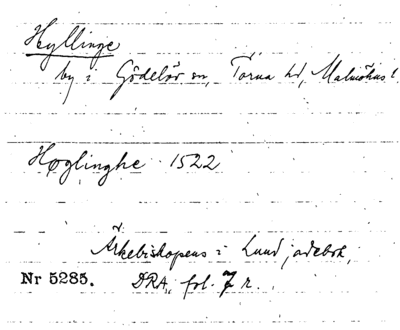 Hyllinge
by i Gödelöv sn, Torna hd, Malmöhus l
Høglinghe 1522
Ärkebiskopens i Lund jordebok,
Nr 5285. DRA, fol. 7 r.